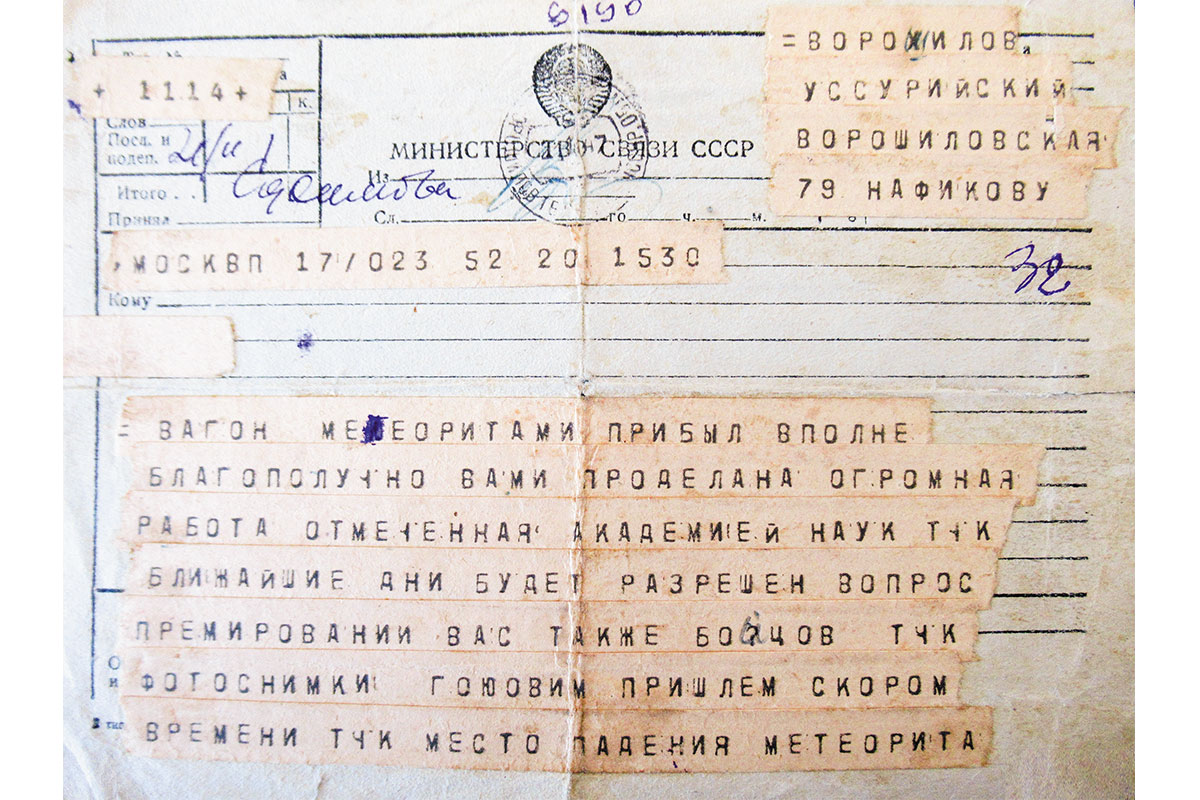 8190
+ 1114 +
к.
Слов
Посл. и
подеп.
Итого . .
Принял
МИНИСТЕРСТВО СВЯЗИ СССР
Из
Сл. го ч. м.
=ВОРОШИЛОВ
УССУРИЙСКИЙ—
ВОРОШИЛОВСКАЯ
79 НАФИКОВУ
МОСКВП 17/023 52 20 1530
32
Кому
= ВАГОН МЕТЕОРИТАМИ ПРИБЫЛ ВПОЛНЕ
БЛАГОПОЛУЧНО ВАМИ ПРОДЕЛАНА ОГРОМНАЯ
РАБОТА ОТМЕЧЕННАЯ АКАДЕМИЕЙ НАУК ТЧК
БЛИЖАЙШИЕ ДНИ БУДЕТ РАЗРЕШЕН ВОПРОС
ПРЕМИРОВАНИИ ВАС ТАКЖЕ БОЙЦОВ ТЧК
ФОТОСНИМКИ ГОЮОВИМ ПРИШЛЕМ СКОРОМ
ВРЕМЕНИ ТЧК МЕСТО ПАДЕНИЯ МЕТЕОРИТА